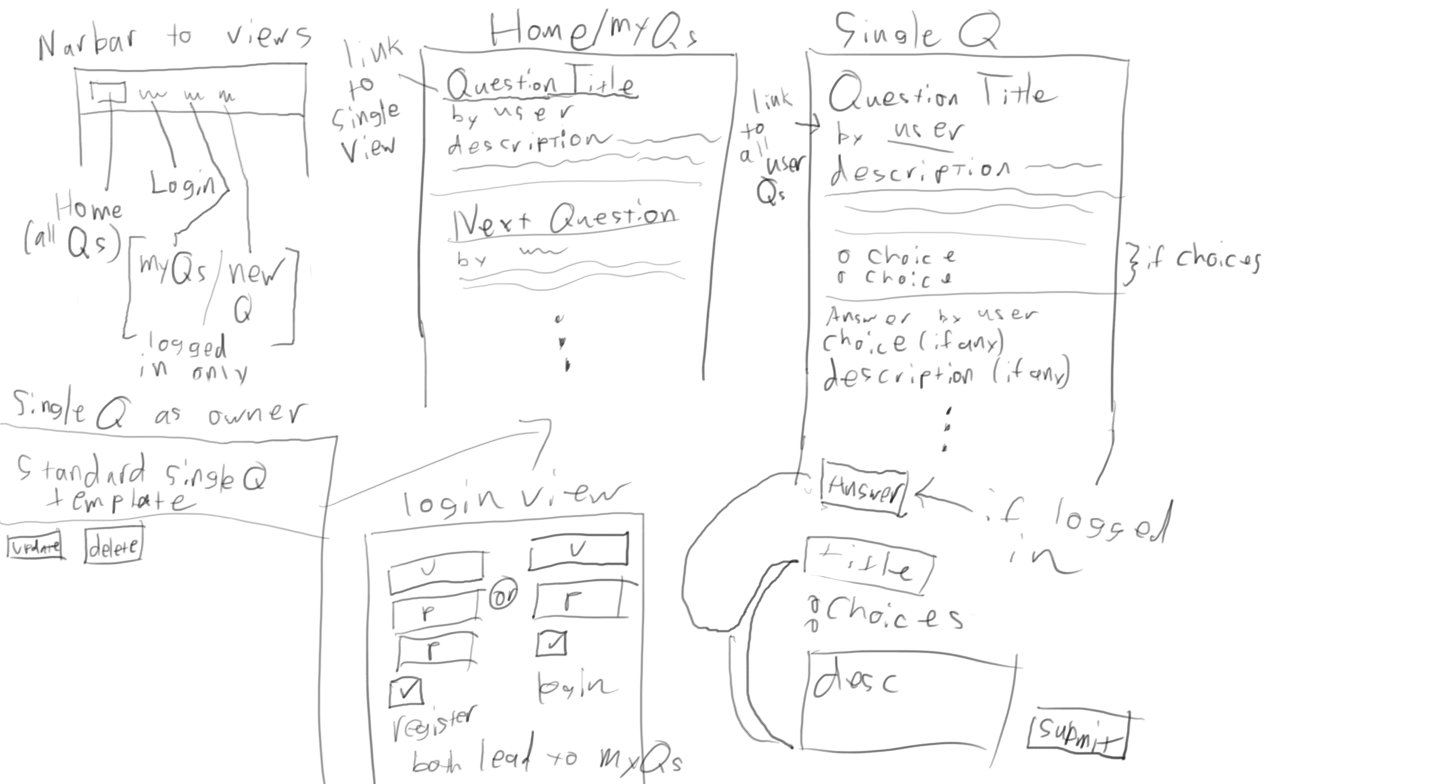 Navbar to views
Home
(all Qs)
Login
myQs / new
Q
logged
in only
link
to
single
view
Home/myQs
Question Title
by user
description
Next Question
by
link
to
all user
Qs
Single Q
Question Title
by user
description
o choice
o choice
} if choices
Answer by user
choice (if any)
description (if any)
Answer
if logged
in
title
o Choices
o
desc
submit
Single Q as owner
Standard single Q
template
update delete
login view
U
P
P
register
or
U
P
login
both lead to myQs